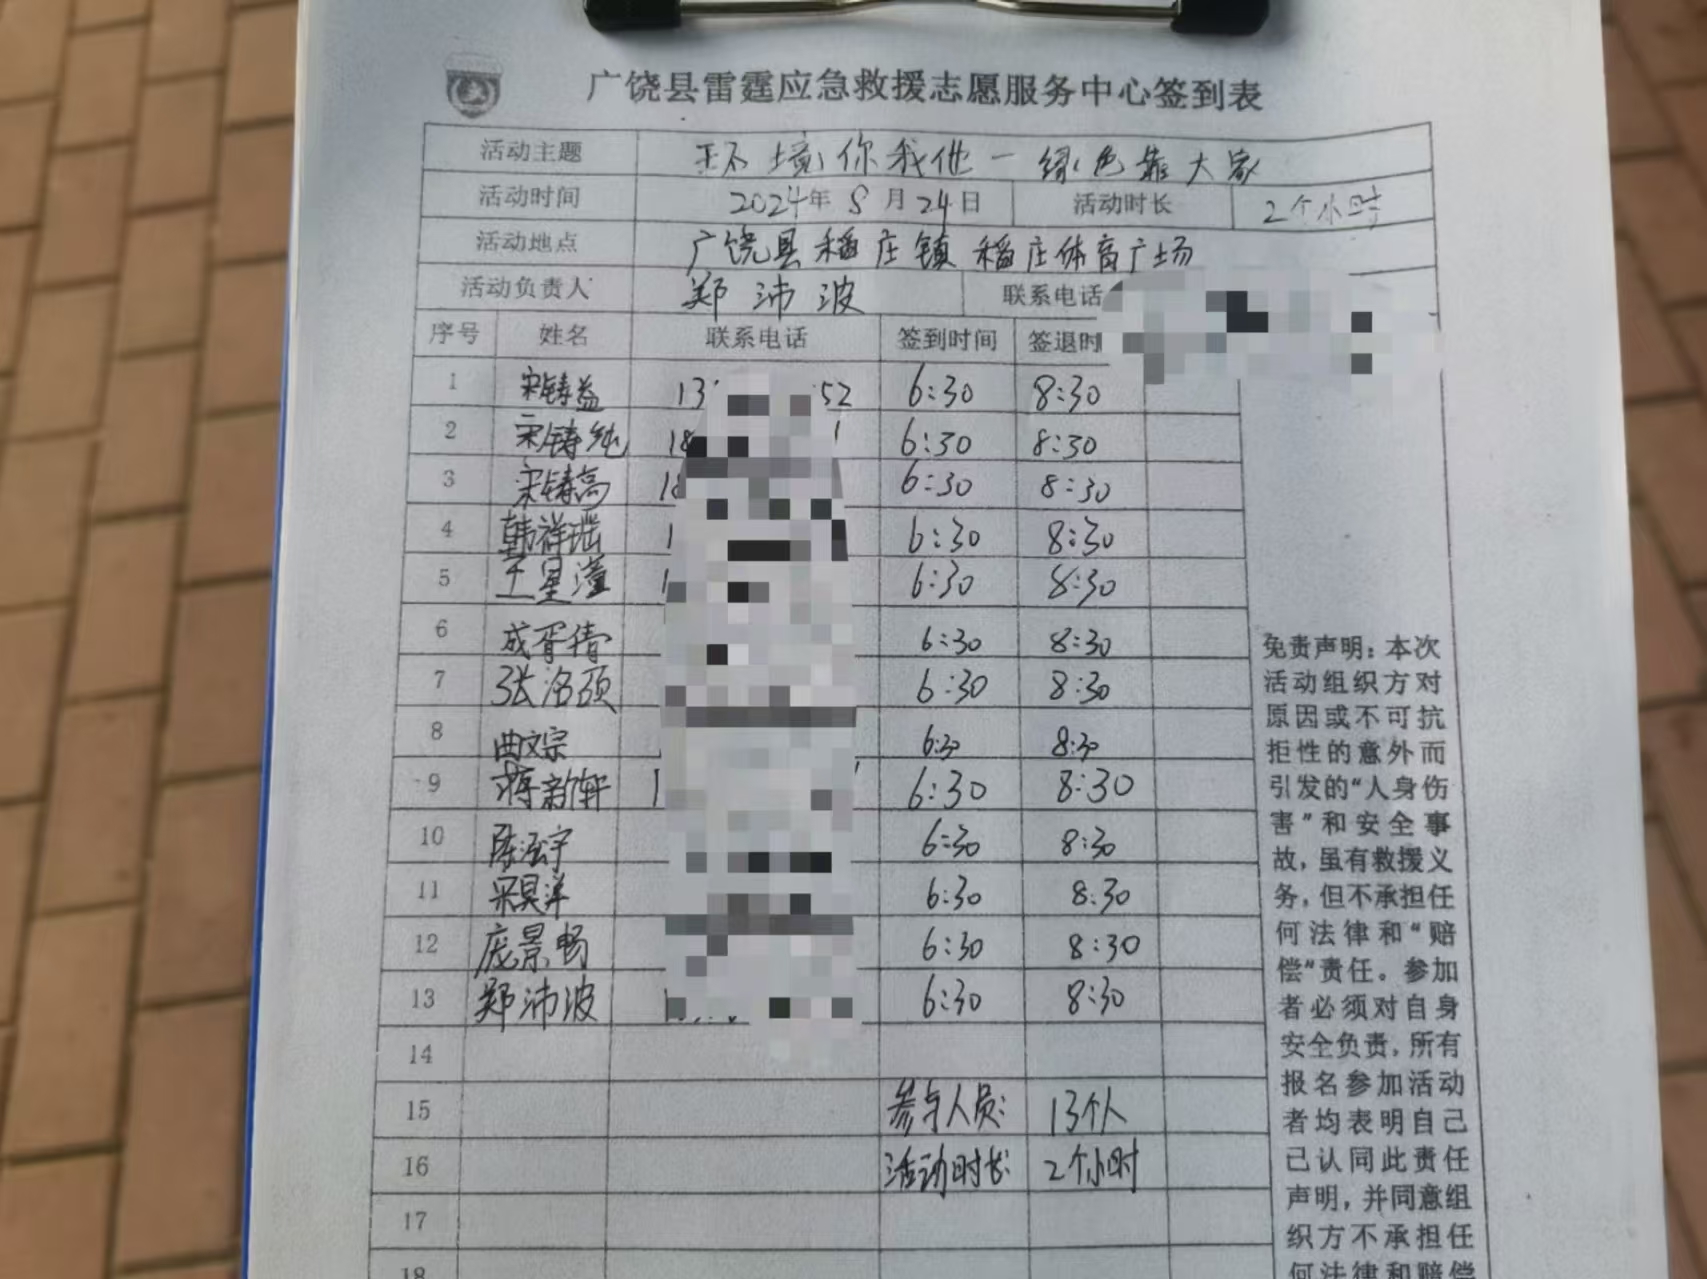 广饶县雷霆应急救援志愿服务中心签到表
活动主题 环境你我他一绿色靠大家
活动时间 2024年8月24日 活动时长 2个小时
活动地点 广饶县稻庄镇稻庄体育广场
活动负责人 郑沛波 联系电话
序号 姓名 联系电话 签到时间 签退时
1 宋铸益 13 52 6:30 8:30
2 宋铸纯 18 1 6:30 8:30
3 宋铸高 18 6:30 8:30
4 韩祥瑶 1 6:30 8:30
5 王星潼 1 6:30 8:30
6 成胥倩 6:30 8:30
7 张洛硕 6:30 8:30
8 曲文宗 6:30 8:30
9 蒋新轩 1 6:30 8:30
10 陈泓宇 6:30 8:30
11 宋昊洋 6:30 8:30
12 庞景畅 6:30 8:30
13 郑沛波 6:30 8:30
14
15 参与人员: 13个人
16 活动时长: 2个小时
17
18
免责声明：本次
活动组织方对
原因或不可抗
拒性的意外而
引发的“人身伤
害”和安全事
故，虽有救援义
务，但不承担任
何法律和“赔
偿”责任。参加
者必须对自身
安全负责，所有
报名参加活动
者均表明自己
已认同此责任
声明，并同意组
织方不承担任
何法律和赔偿